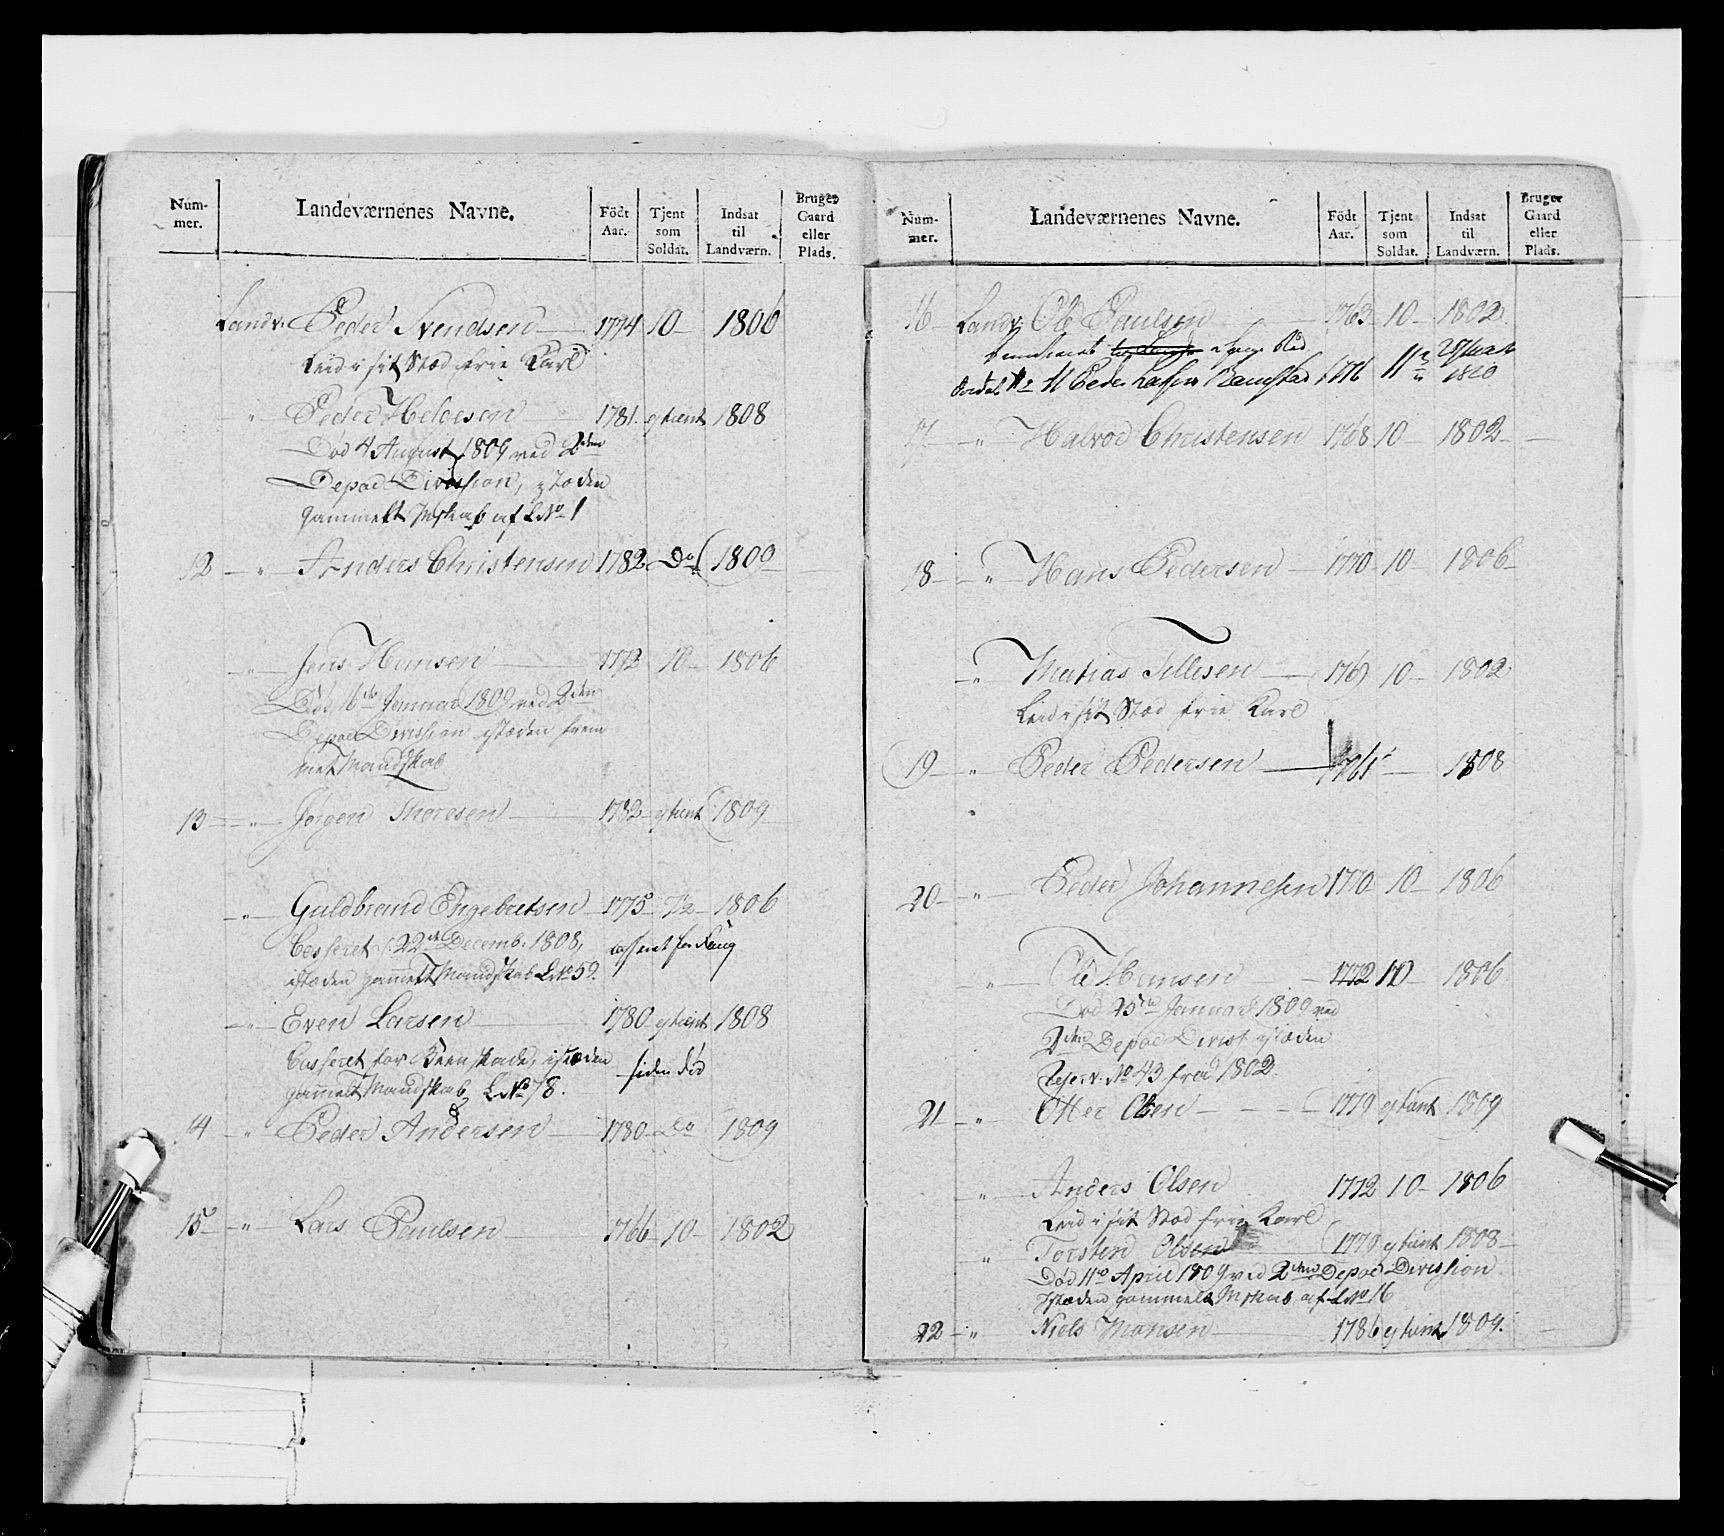 Num-mer. Landeværnenes Navne. Födt Aar. Tjent som Soldat. Indsat til Landværn. Bruger Gaard eller Plads.
Landv. Peder Svendsen 1774 10 1806
Leid i sit Stæd frie Karl
" Peder Heloesen 1781. ej tient 1808
Död 4 August 1809 ved 2den
Depot Division, istæden
gammelt Mskab af LNo 1
12 " Anders Christensen 1782 Do 1809
" Jens Hansen 1772 10 1806
Död 16de Januar 1809 ved 2den
Depot Division istæden frem
met Mandskab
13 " Jörgen Thoresen 1782 ej tient 1809
" Guldbrand Engebretsen 1775 7½ 1806
Casseret 22de Decemb: 1808,
istæden gammelt Mandskab LNo 59.
" Even Larsen 1780 ej tient 1808
Casseret for Beenskade, istæden siden död
gammelt Mandskab LNo 78.
14 " Peder Andersen 1780 Do 1809
15 " Lars Paulsen 1766 10 1802
Num-mer. Landeværnenes Navne. Födt Aar. Tjent som Soldat. Indsat til Landværn. Bruger Gaard eller Plads.
16 Landv. Ole Paulsen 1763 10 1802
No 11 Peder Larsen 1776 11 1810
17 " Halvod Christensen 1768 10 1802
18 " Hans Pedersen 1770 10 1806
" Matias Tillesen 1769 10 1802
Leid i sit Stæd frie Karl
19 " Peder Pedersen 1761 1808
20 " Peder Johannesen 1770 10 1806
" Ole Hansen 1772 10 1806
Död 25de Januar 1809 ved
2den Depot Divist istæden
Reserv. No 43 fra 1802.
21 " Otter Olsen 1779 ej tient 1809
" Anders Olsen 1772 10 1806
Leid i sit Stæd frie Karl
" Torsten Olsen 1779 ej tient 1808
Död 11te April 1809 ved 2den Depot Division
Istæden gammelt Mskab af LNo 16
22 " Niels Monsen 1786 ej tient 1809.